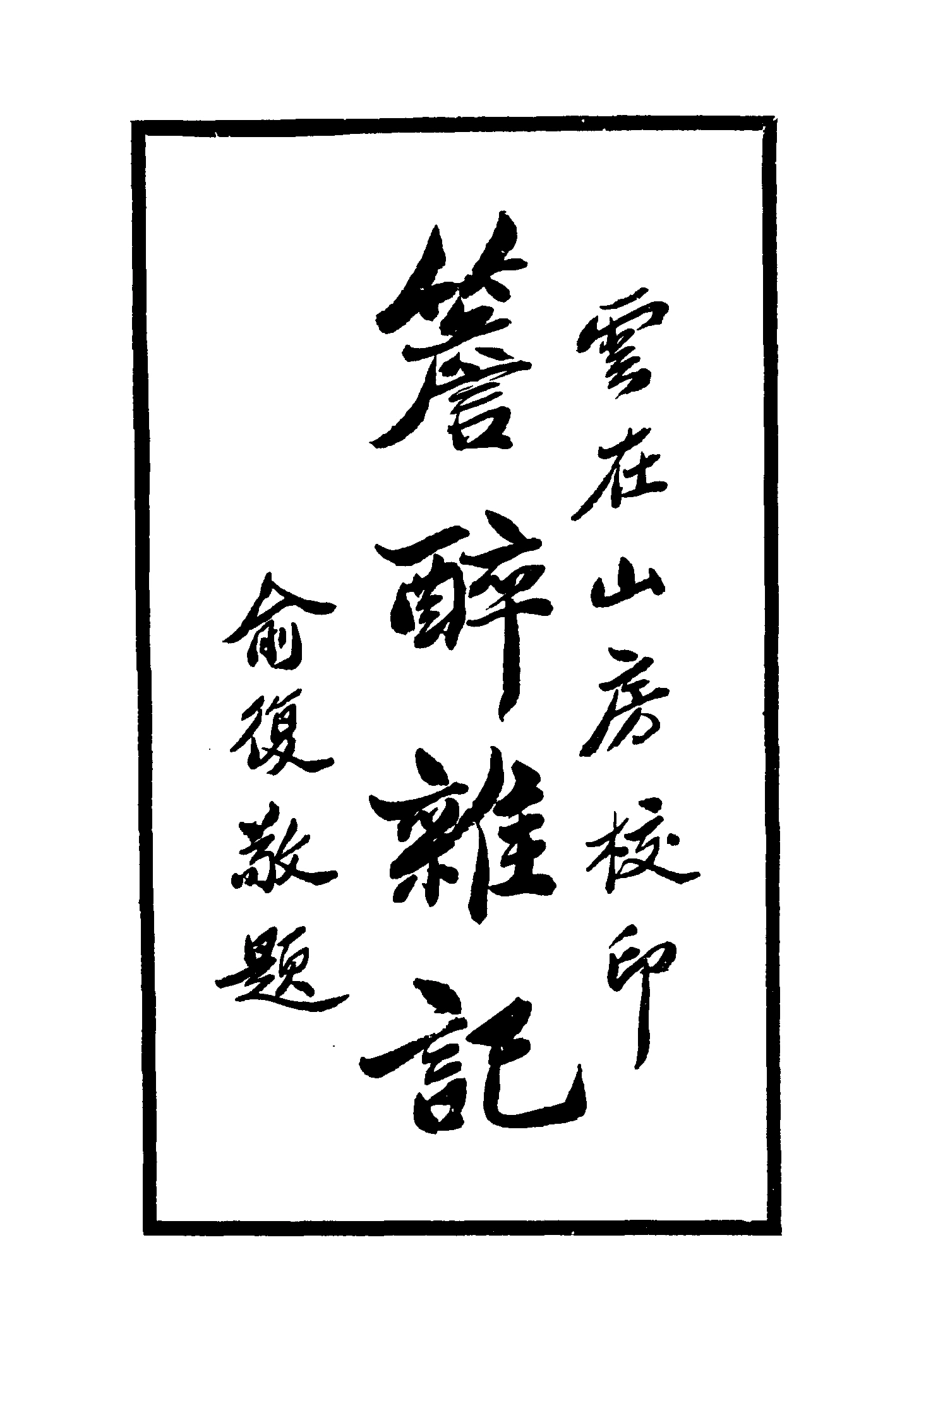 雲在山房校印
簷醉雜記
俞復敬題